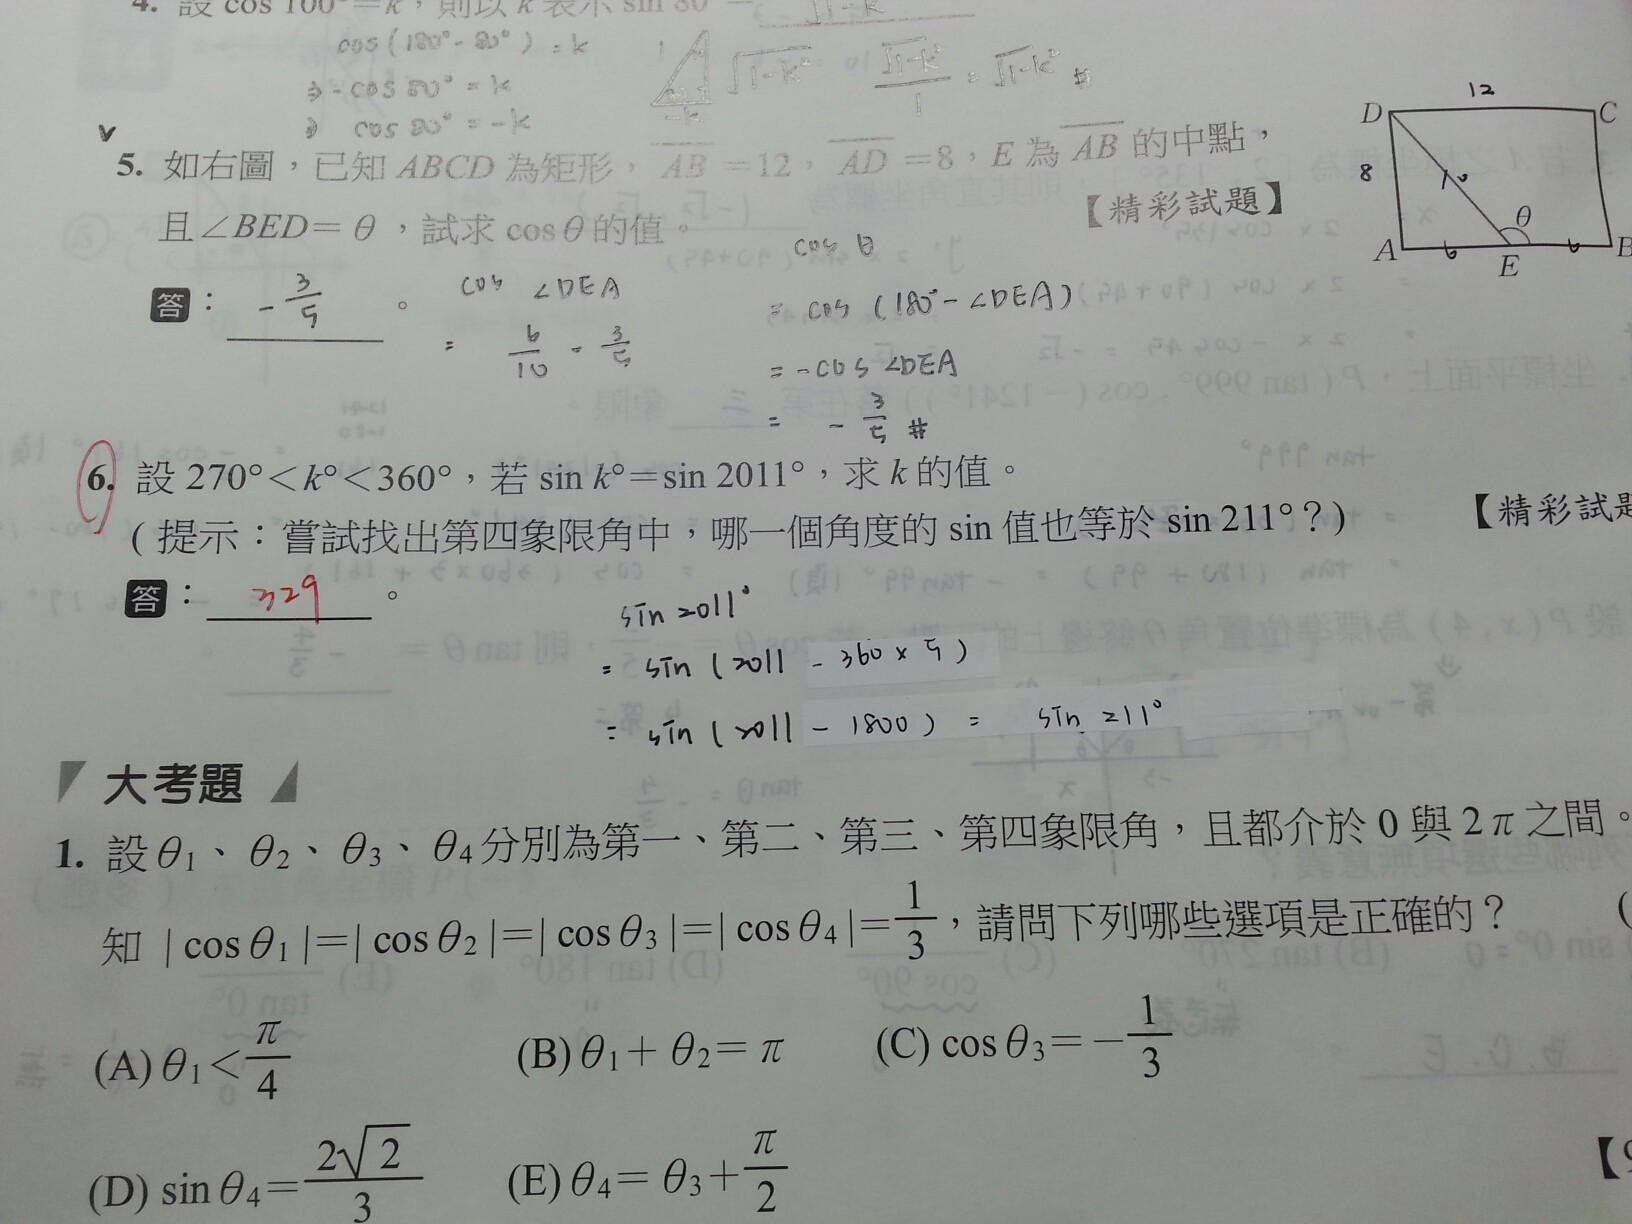 4. 設 cos 100°=k，則以 k 表示 sin 80°= √1-k²
cos(180°-80°)=k
⇒ -cos80° = k
⇒ cos80° = -k
1 √1-k² √1-k²/1 = √1-k² #
-k
5. 如右圖，已知 ABCD 為矩形，AB=12，AD=8，E 為 AB 的中點，
且∠BED=θ，試求 cosθ 的值。 【精彩試題】
答：-3/5。
cos ∠DEA
= 6/10 = 3/5
cos θ
= cos (180°-∠DEA)
= -cos ∠DEA
= -3/5 #
D 12 C
8 10 θ
A 6 E 6 B
6. 設 270°<k°<360°，若 sin k°=sin 2011°，求 k 的值。
(提示：嘗試找出第四象限角中，哪一個角度的 sin 值也等於 sin 211°？) 【精彩試題
答：329。
sin 2011°
= sin (2011 - 360×5)
= sin (2011 - 1800) = sin 211°
大考題
1. 設 θ₁、θ₂、θ₃、θ₄分別為第一、第二、第三、第四象限角，且都介於 0 與 2π 之間。
知 |cosθ₁|=|cosθ₂|=|cosθ₃|=|cosθ₄|=1/3，請問下列哪些選項是正確的？ (
(A) θ₁<π/4 (B) θ₁+θ₂=π (C) cosθ₃=-1/3
(D) sinθ₄=2√2/3 (E) θ₄=θ₃+π/2